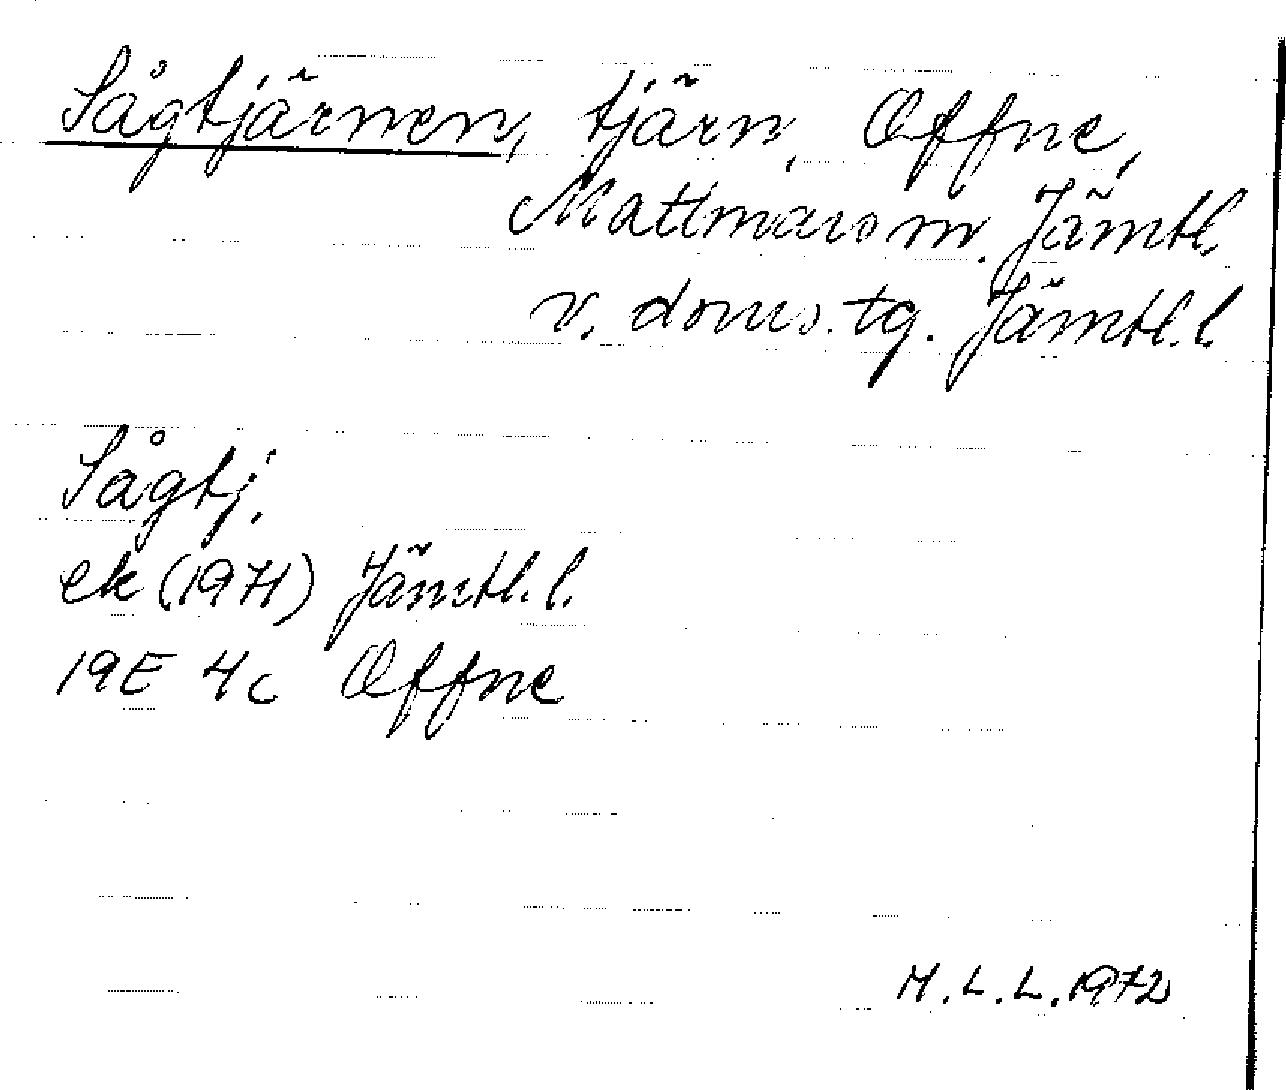 Sågtjärnen, tjärn, Offne,
Mattmars sn. Jämtl.
v. doms. tg. Jämtl. l.
Sågtj.
ek (1971) Jämtl. l.
19E 4c Offne
M. L. L. 1972